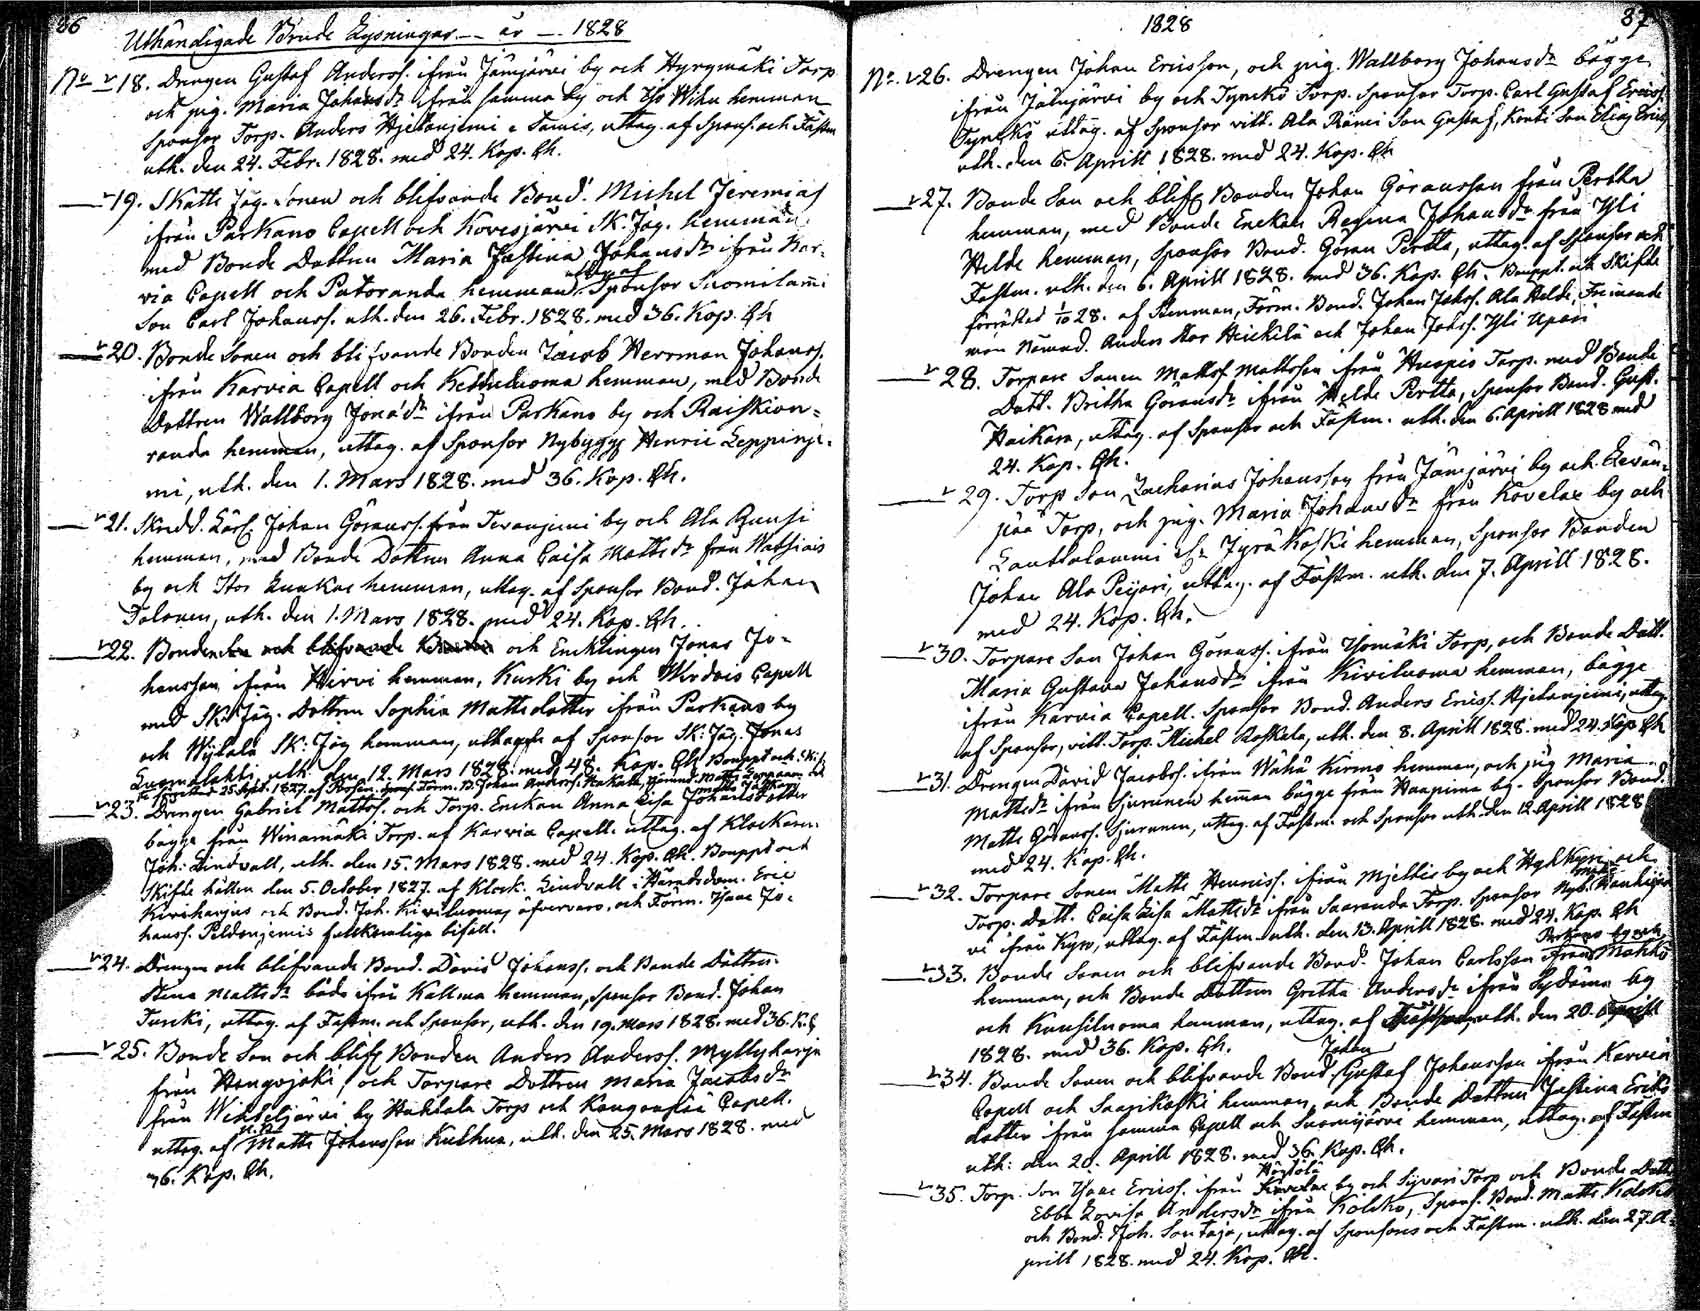 86
Uthändigade Brude Lysningar — år — 1828
No 18. Drengen Gustaf Anderss. ifrån Jämijärvi by och Hyrymäki Torp
och pig. Maria Johansdr ifrån samma by och Yso Wihu hemman
Sponsor Torp. Anders Hjetanjemi uttag. af Spons. och Fästm
uth. den 24. Febr. 1828. med 24. Kop. Rh.
19. Skatte Jäg. Sonen och blifvande Bond. Michel Jeremias
ifrån Parkano Capell och Kovesjärvi Sk. Jäg. hemman
med Bonde Dottren Maria Justina Johansdr ifrån Kar-
via Capell och Patoranda hemman, uttag af Sponsor Suomilami
Son Carl Johanss. uth. den 26. Febr. 1828. med 36. Kop. Rh
20. Bonde Sonen och blifvande Bonden Jacob Herrman Johanss.
ifrån Karvia Capell och Kettuluoma hemman, med Bonde
Dottren Wallborg Jonædr ifrån Parkano by och Raiskion-
randa hemman, uttag. af Sponsor Nybygg. Henric Leppinje-
mi, uth. den 1. Mars 1828. med 36. Kop. Rh.
21. Skredd. Lärl. Johan Göranss. från Tevanjemi by och Ala Runsi
hemman, med Bonde Dottren Anna Caisa Mattsdr från Watsiais
by och Stor Lunkas hemman, uttag. af Sponsor Bond. Johan
Talonen, uth. den 1. Mars 1828. med 24. Kop. Rh.
22. Bonden och blifvande Bonden och Encklingen Jonas Jo-
hansson ifrån Hirvi hemman, Kurki by och Wirdois Capell
med Sk. Jäg. Dottren Sophia Mattsdotter ifrån Parkano by
och Wylälä Sk: Jäg hemman, uttagen af Sponsor Sk: Jäg. Jonas
Luomalahti, uth. den 12. Mars 1828. med 48. Kop. Rh Bouppt och Skif-
23. Drengen Gabriel Mattss. och Torp. Enckan Anna Lisa Johansdotter
bägge från Winamäki Torp. af Karvia Capell. uttag. af Klockaren
Joh: Lindvall, uth. den 15. Mars 1828. med 24. Kop. Rh. Bouppt och
Skifte hållen den 5. October 1827. af Klock. Lindvall i Häradsdom. Eric
Kiviharjus och Bond. Joh. Kiviluomas öfvervaro, och Förm. Ysaac Jo-
hanss. Peldonjemis fullkomliga bifall.
24. Drengen och blifvande Bond. David Johanss. och Bonde Dottren
Stena Mattsdr både ifrån Kallma hemman, Sponsor Bond. Johan
Turcki, uttag. af Fästm. och Sponsor, uth. den 19. Mars 1828. med 36. K.
25. Bonde Son och blif. Bonden Anders Anderss. Myllyharju
från Hongojoki och Torpare Dottren Maria Jacobsdr
från Wihteljärvi by Huhtala Torp och Kangonpää Capell.
uttag. af Matts Johansson Kulhua, uth. den 25. Mars 1828. med
36. Kop. Rh.
1828
87
No. 26. Drengen Johan Ericsson, och pig. Wallborg Johansdr bägge
ifrån Jämijärvi by och Tyncko Torp. Sponsor Torp. Carl Gustaf Ericss.
Tyncko uttag. af Sponsor vitt. Ala Rämi Son Gustaf, Konti Son Elias Ericss.
uth. den 6. Aprill 1828. med 24. Kop. Rh
27. Bonde Son och blif Bonden Johan Göransson från Pertta
hemman, med Bonde Enckan Regina Johansdr från Yli
Helde hemman, Sponsor Bond. Göran Pertta, uttag. af Sponsor och
Fästm. uth. den 6. Aprill 1828. med 36. Kop. Rh. Bouppt. och Skifte
förrättad 1/10 28. af Stenman, Förm. Bond. Johan Johss. Ala Helde, Frimande
män Nämnd. Anders Stor Heickilä och Johan Johss. Yli Upari
28. Torpare Sonen Mattss Mattsson ifrån Huopis Torp. med Bonde
Dott. Britha Göransdr ifrån Helde Pertta, Sponsor Bond. Gust.
Haikara, uttag. af Sponsor och Fästm. uth. den 6. Aprill 1828 med
24. Kop. Rh.
29. Torp Son Zacharias Johansson från Jämijärvi by och Levän-
pää Torp, och pig. Maria Johansdr från Kovelax by och
Lautalammi Jyräkoski hemman, Sponsor Bonden
Johan Ala Peijari, uttag. af Fästm. uth. den 7. Aprill 1828.
med 24. Kop. Rh.
30. Torpare Son Johan Göranss. ifrån Ysomäki Torp, och Bonde Dott.
Maria Gustava Johansdr ifrån Kiviluoma hemman, bägge
ifrån Karvia Capell. Sponsor Bond. Anders Ericss. Hjetanjemi, uttag.
af Sponsor, vitt. Torp. Michel Koskela, uth. den 8. Aprill 1828. med 24. Kop Rh
31. Drengen David Jacobss. ifrån Wähä Kirmo hemman, och pig Maria
Mattsdr ifrån Sjurunen heman bägge från Haapima by. Sponsor Bond.
Matts Göranss. Sjurunen, uttag. af Fästm. och Sponsor uth. den 12 Aprill 1828
med 24. Kop. Rh.
32. Torpare Sonen Matts Henrics. ifrån Mjeltis by och och
Torp. Dott. Caisa Lisa Mattsdr ifrån Saaranda Torp. Sponsor Nyb.
ifrån Kyro, uttag. af Fästm. uth. den 13. Aprill 1828. med 24. Kop. Rh
33. Bonde Sonen och blifvande Bond. Johan Carlsson ifrån Parkano by och Mahkö
hemman, och Bonde Dottren Gretha Andersdr ifrån Sydänm by
och Kuusiluoma hemman, uttag. af Fästm, uth. den 20. Aprill
1828. med 36. Kop. Rh.
34. Bonde Sonen och blifvande Bond. Johan Gustaf Johansson ifrån Karvia
Capell och Saarikoski hemman, och Bonde Dottren Justina Erics
dotter ifrån samma Capell och Suomijärvi hemman, uttag. af Fästm
uth: den 20. Aprill 1828. med 36. Kop. Rh.
35. Torp. Son Ysaac Ericss. ifrån by och Syvari Torp och Bonde Dott.
Ebba Lovisa Andersdr ifrån Kolcko, Spons. Bond. Matts Kolcko
och Bond. Joh. Sontaja, uttag. af Sponsores och Fästm. uth. den 27. A-
prill 1828. med 24. Kop. Rh.